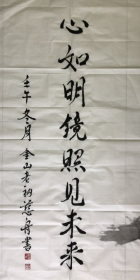 心如明镜照见未来
壬午冬月 金山老衲慈舟书